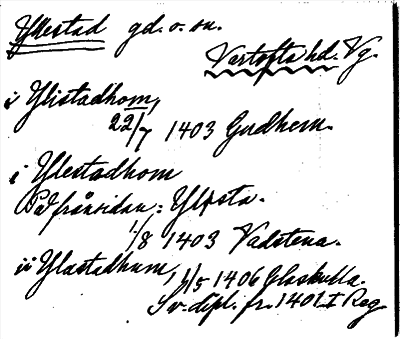 Yllestad gd. o. sn.
Vartofta hd. Vg.
i Ylistadhom,
22/7 1403 Gudhem.
i Ylestadhom
På frånsidan: Ylista.
1/8 1403 Vadstena.
ii Ylastadhum, 1/5 1406 Glaskulla.
Sv. dipl. fr. 1401 I Reg